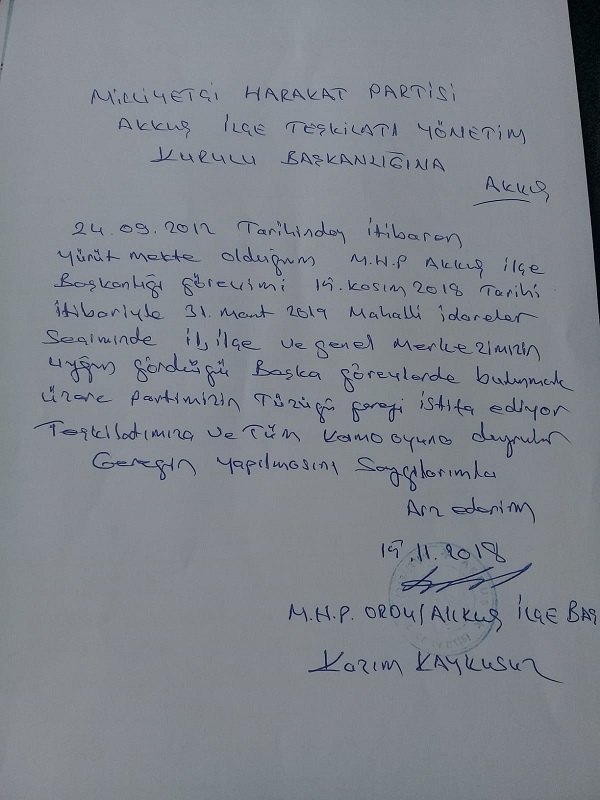 MİLLİYETÇİ HARAKAT PARTİSİ
AKKUŞ İLÇE TEŞKİLATI YÖNETİM
KURULU BAŞKANLIĞINA
AKKUŞ
24.09.2012 Tarihinden itibaren
yürütmekte olduğum M.H.P AKKUŞ ilçe
Başkanlığı görevimi 19.Kasım 2018 Tarihi
itibariyle 31.Mart 2019 Mahalli idareler
Seçiminde il, ilçe ve genel Merkezimizin
uygun gördüğü Başka görevlerde bulunmak
üzere Partimizin Tüzüğü gereği istifa ediyor
Teşkilatımıza ve Tüm Kamo oyuna duyrulur
Gereğin yapılmasını Saygılarımla
Arz ederim
19.11.2018
M.H.P. ORDU/AKKUŞ İLÇE BAŞ
Kazım KAYKUSUZ